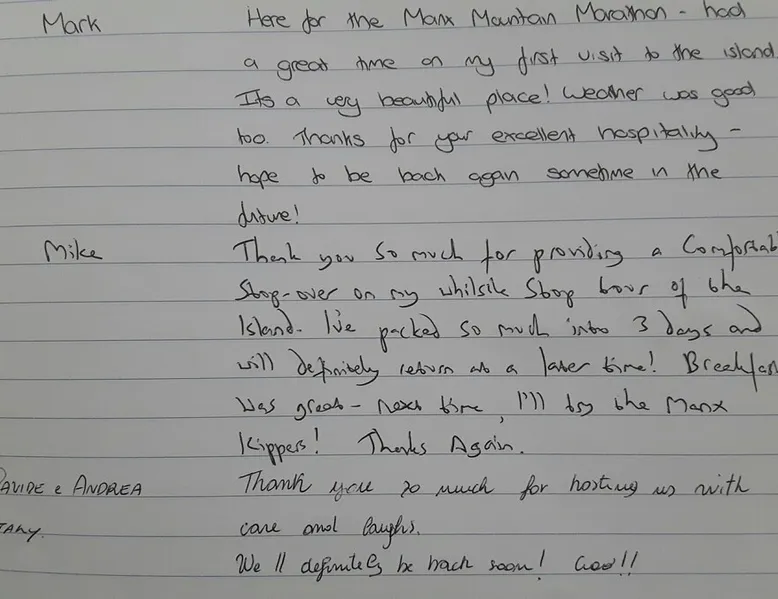 Mark Here for the Manx Mountain Marathon - had
a great time on my first visit to the island
Its a very beautiful place! Weather was good
too. Thanks for your excellent hospitality -
hope to be back again sometime in the
future!
Mike Thank you so much for providing a Comfortab
Stop-over on my whilsile Stop tour of the
Island. I've packed so much into 3 days and
will definitely return at a later time! Breakfas
was great - next time, I'll try the Manx
Kippers! Thanks Again.
AVIDE e ANDREA Thank you so much for hosting us with
TALY. care and laughs.
We'll definitely be back soon! Ciao!!